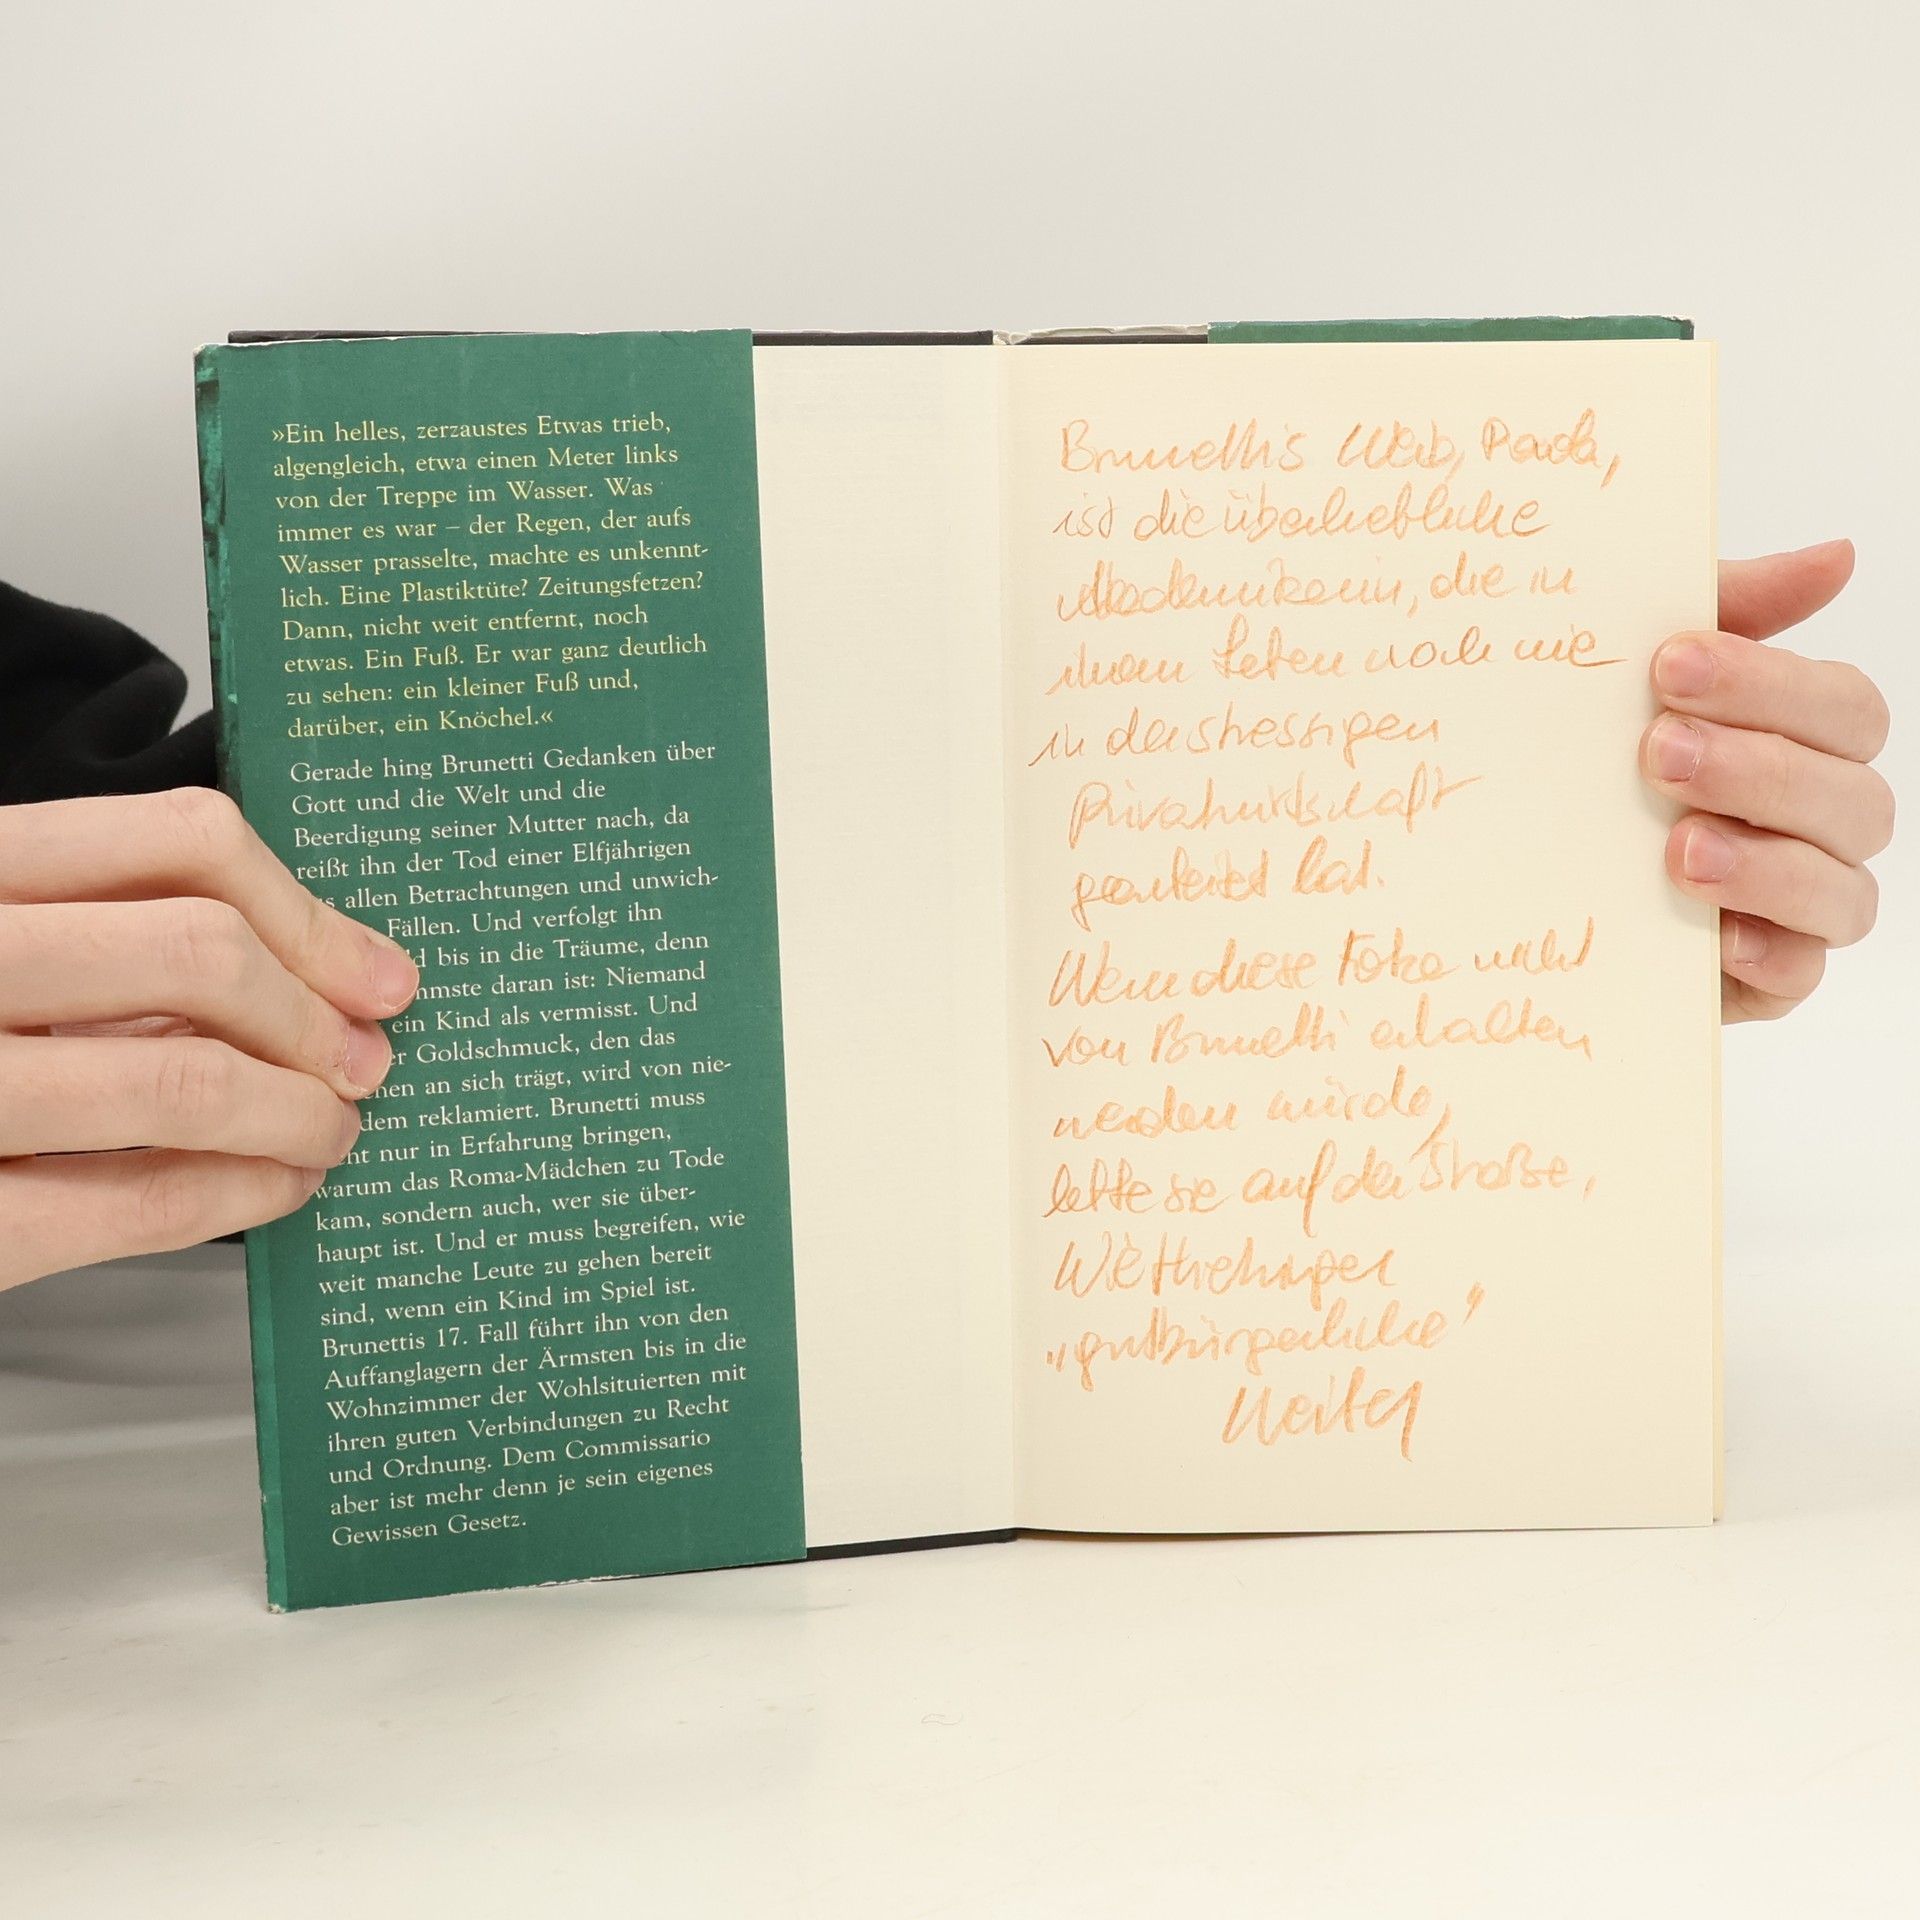 »Ein helles, zerzaustes Etwas trieb,
algengleich, etwa einen Meter links
von der Treppe im Wasser. Was
immer es war – der Regen, der aufs
Wasser prasselte, machte es unkennt-
lich. Eine Plastiktüte? Zeitungsfetzen?
Dann, nicht weit entfernt, noch
etwas. Ein Fuß. Er war ganz deutlich
zu sehen: ein kleiner Fuß und,
darüber, ein Knöchel.«
Gerade hing Brunetti Gedanken über
Gott und die Welt und die
Beerdigung seiner Mutter nach, da
reißt ihn der Tod einer Elfjährigen
s allen Betrachtungen und unwich-
Fällen. Und verfolgt ihn
d bis in die Träume, denn
mmste daran ist: Niemand
ein Kind als vermisst. Und
er Goldschmuck, den das
chen an sich trägt, wird von nie-
dem reklamiert. Brunetti muss
ht nur in Erfahrung bringen,
warum das Roma-Mädchen zu Tode
kam, sondern auch, wer sie über-
haupt ist. Und er muss begreifen, wie
weit manche Leute zu gehen bereit
sind, wenn ein Kind im Spiel ist.
Brunettis 17. Fall führt ihn von den
Auffanglagern der Ärmsten bis in die
Wohnzimmer der Wohlsituierten mit
ihren guten Verbindungen zu Recht
und Ordnung. Dem Commissario
aber ist mehr denn je sein eigenes
Gewissen Gesetz.
Brunetti's Weib, Paola,
ist die überhebliche
Akademikerin, die in
ihrem Leben noch nie
in der stressigen
Privatwirtschaft
gearbeitet hat.
Wenn diese Fotze nicht
von Brunetti erhalten
werden würde,
lebte sie auf der Straße,
"gutbürgerliche"